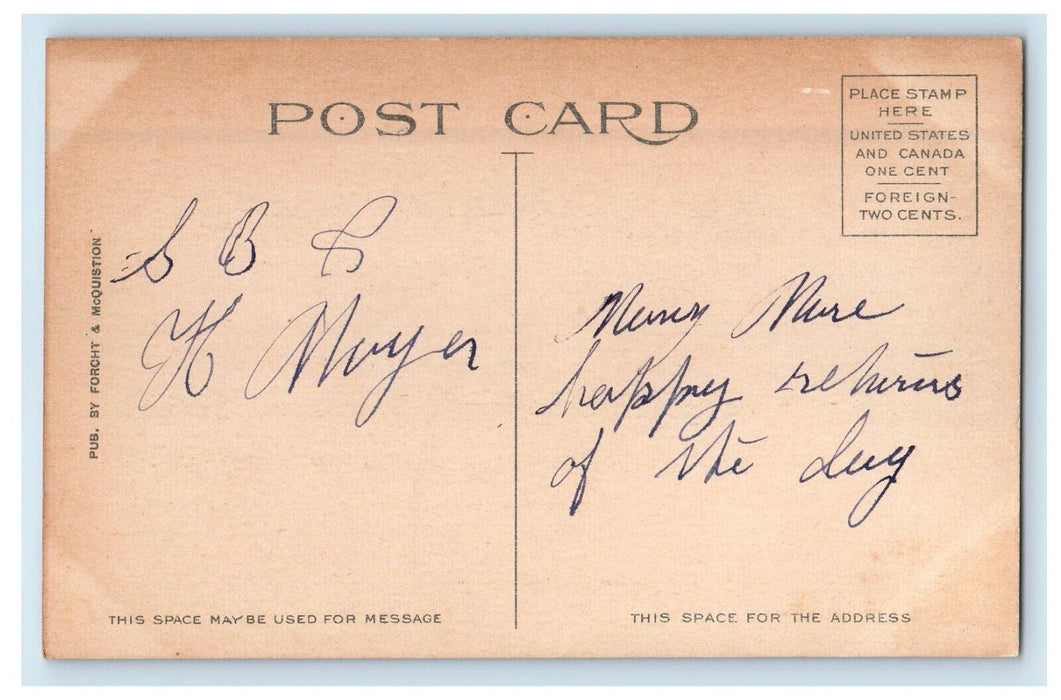 POST CARD
PLACE STAMP
HERE
UNITED STATES
AND CANADA
ONE CENT
FOREIGN-
TWO CENTS.
PUB. BY FORCHT & McQUISTION
S B S
H Moyer
Many More
happy returns
of the day
THIS SPACE MAY BE USED FOR MESSAGE
THIS SPACE FOR THE ADDRESS